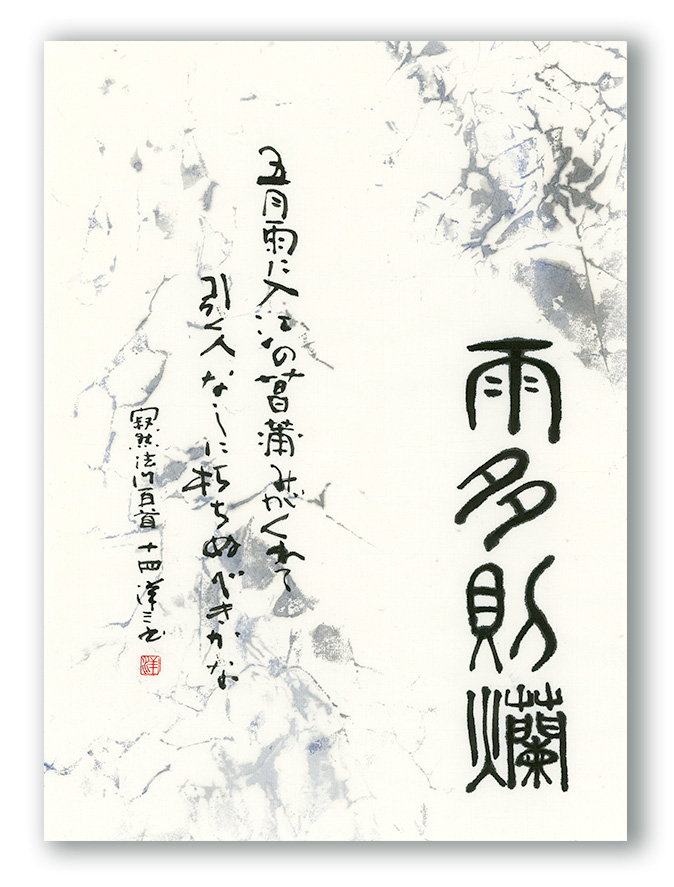 雨多則爛
五月雨に入江の菖蒲みがくれて
引く人なしに朽ちぬべきかな
寂然法門百首 十四 洋三書
洋